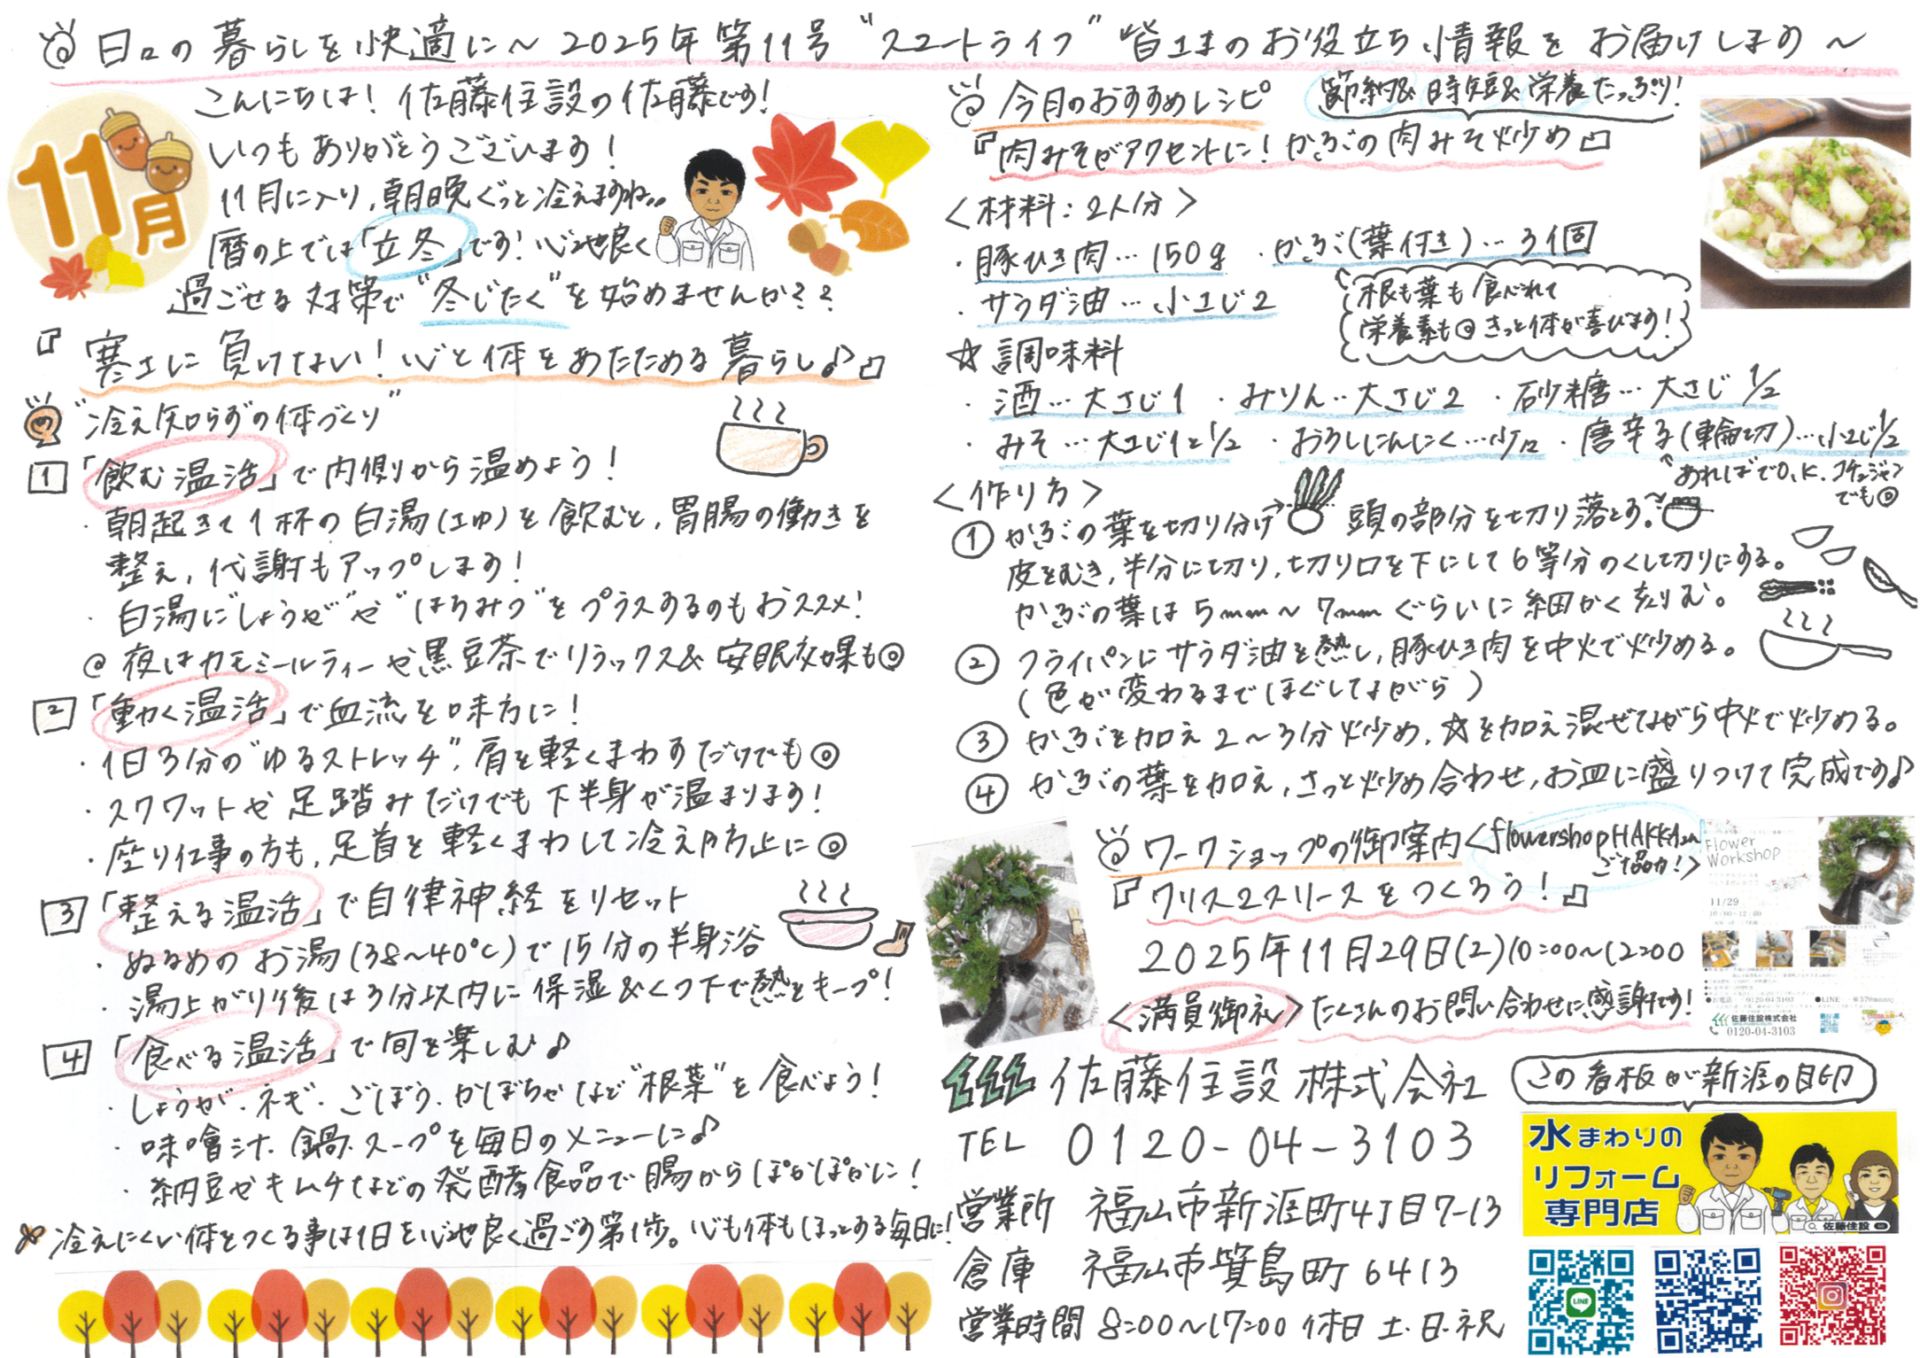 日々の暮らしを快適に～2025年第11号"スマートライフ"皆さまのお役立ち情報をお届けします～
11月
こんにちは!佐藤住設の佐藤です!
いつもありがとうございます!
11月に入り、朝晩ぐっと冷えますね。。
暦の上では「立冬」です!心地良く
過ごせる対策で"冬じたく"を始めませんか??
『寒さに負けない!心と体をあたためる暮らし♪』
"冷え知らずの体づくり"
1 「飲む温活」で内側から温めよう!
・朝起きて1杯の白湯(さゆ)を飲むと、胃腸の働きを
整え、代謝もアップします!
・白湯に"しょうが"や"はちみつ"をプラスするのもおススメ!
@夜はカモミールティーや黒豆茶でリラックス&安眠効果も◎
2 「動く温活」で血流を味方に!
・1日3分の"ゆるストレッチ"、肩を軽くまわすだけでも◎
・スクワットや足踏みだけでも下半身が温まります!
・座り仕事の方も、足首を軽くまわして冷え防止に◎
3 「整える温活」で自律神経をリセット
・ぬるめのお湯(38～40℃)で15分の半身浴
・湯上がり後は3分以内に保湿&くつ下で熱をキープ!
4 「食べる温活」で旬を楽しむ♪
・しょうが・ネギ・ごぼう・かぼちゃなど"根菜"を食べよう!
・味噌汁・鍋・スープを毎日のメニューに♪
・納豆やキムチなどの発酵食品で腸からぽかぽかに!
冷えにくい体をつくる事は1日を心地良く過ごす第1歩。心も体もほっとする毎日に!
今月のおすすめレシピ
節約&時短&栄養たっぷり!
『肉みそがアクセントに!かぶの肉みそ炒め』
<材料:2人分>
・豚ひき肉…150g ・かぶ(葉付き)…3個
・サラダ油…小さじ2
根も葉も食べれて
栄養素も◎きっと体が喜びます!
☆調味料
・酒…大さじ1 ・みりん…大さじ2 ・砂糖…大さじ1/2
・みそ…大さじ1と1/2 ・おろしにんにく…小1/2 ・唐辛子(輪切)…小さじ1/2
あればでO.K.コチュジャン
でも◎
<作り方>
① かぶの葉を切り分け→ 頭の部分を切り落とす。
皮をむき、半分に切り、切り口を下にして6等分のくし切りにする。
かぶの葉は5mm～7mmぐらいに細かく刻む。
② フライパンにサラダ油を熱し、豚ひき肉を中火で炒める。
(色が変わるまでほぐしてながら)
③ かぶを加え2～3分炒め、☆を加え混ぜながら中火で炒める。
④ かぶの葉を加え、さっと炒め合わせ、お皿に盛りつけて完成です♪
ワークショップの御案内<flowershopHAKKAさん
ご協力!>
『クリスマスリースをつくろう!』
2025年11月29日(土)10:00～12:00
<満員御礼>たくさんのお問い合わせに感謝です!
Flower
Workshop
11/29
10:00~12:00
0120-04-3103
●LINE
佐藤住設株式会社
0120-04-3103
佐藤住設株式会社
TEL 0120-04-3103
営業所 福山市新涯町4丁目7-13
倉庫 福山市箕島町6413
営業時間 8:00～17:00 休日 土・日・祝
この看板が新涯の目印
水まわりの
リフォーム
専門店
佐藤住設
LINE